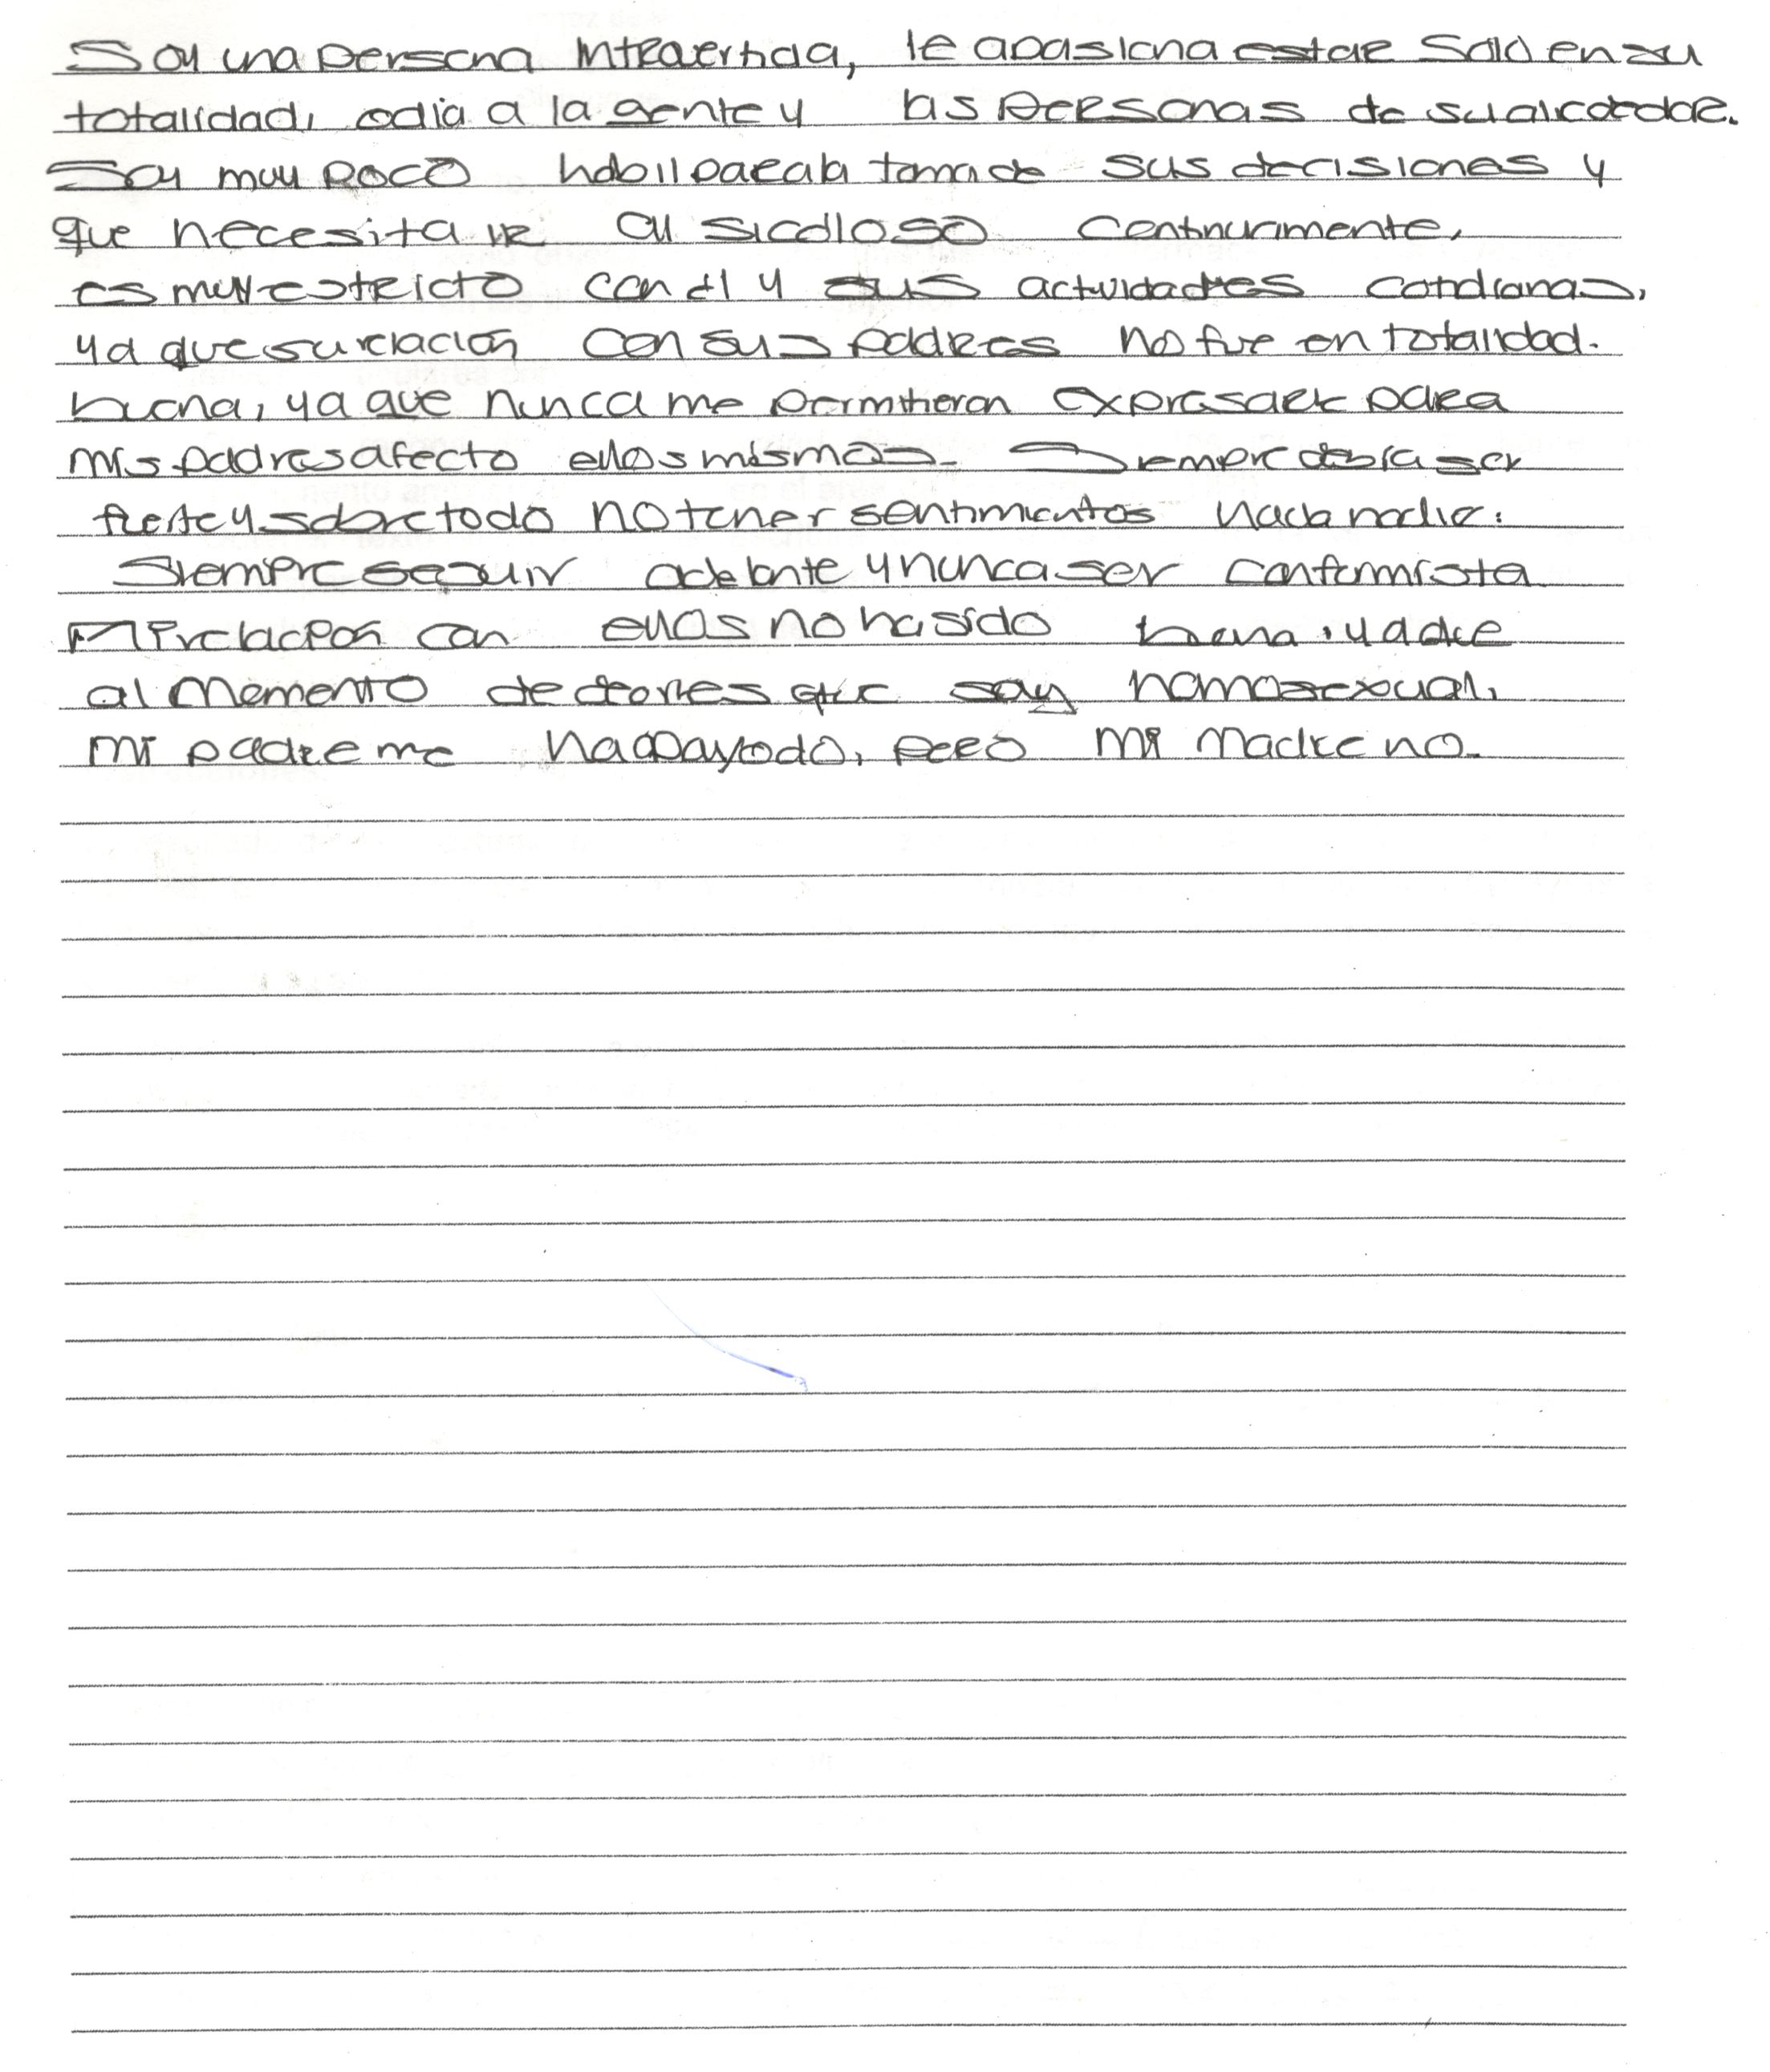 Soy una persona intravertida, le apasiona estar solo en su
totalidad, odia a la gente y las personas de su alrededor.
Soy muy poco habil para la toma de sus decisiones y
que necesita ir al sicologo continuamente,
es muy estricto con él y sus actividades cotidianas,
ya que su relación con sus padres no fue en totalidad.
buena, ya que nunca me permitieron expresar para
mis padres afecto ellos mismos. Siempre debía ser
fuerte y sobre todo no tener sentimientos hacia nadie.
Siempre seguir adelante y nunca ser conformista
Mi relación con ellos no ha sido buena, ya que
al momento de decirles que soy homosexual,
mi padre me ha apoyado, pero mi madre no.